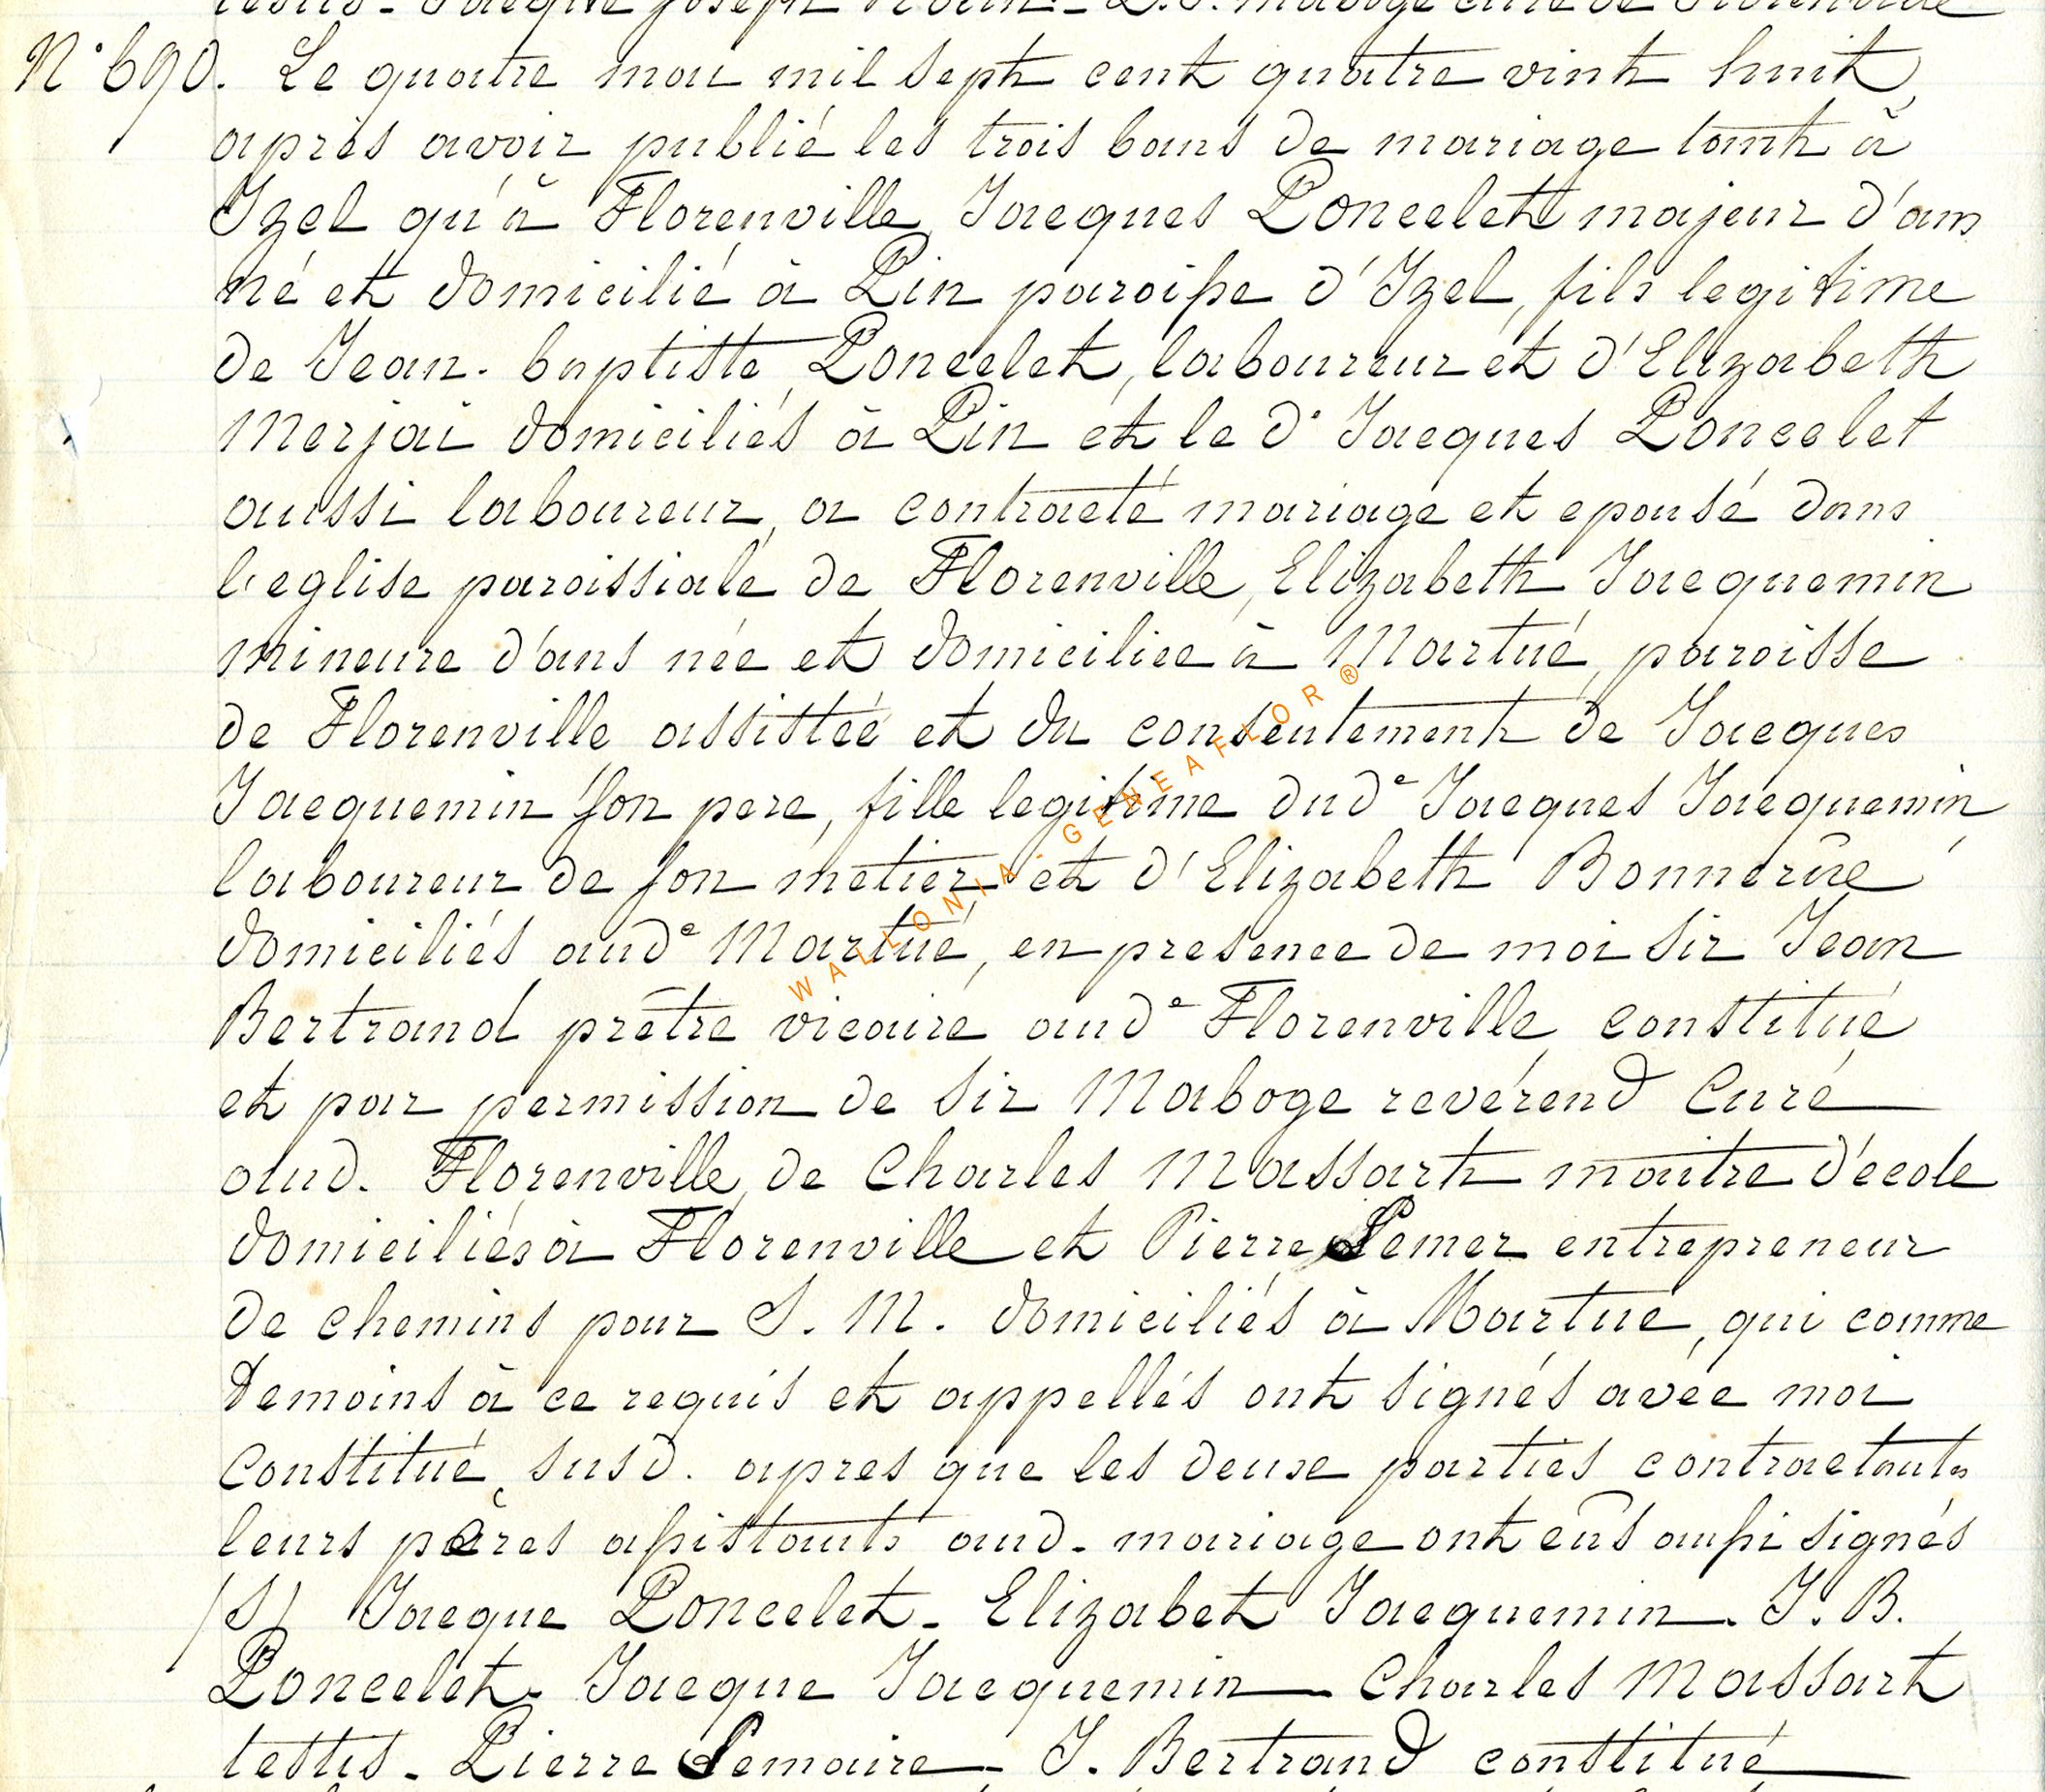 testis - Jacque Joseph
N° 690. Le quatre mai mil sept cent quatre vint huit,
après avoir publié les trois bans de mariage tant à
Izel qu'à Florenville, Jacques Poncelet majeur d'ans
né et domicilié à Pin paroisse d'Izel, fils legitime
de Jean-baptiste Poncelet, laboureur et d'Elizabeth
Merjai domiciliés à Pin et le d° Jacques Poncelet
aussi laboureur, a contracté mariage et epousé dans
l'eglise paroissiale de Florenville, Elizabeth Jacquemin
mineure d'ans née et domiciliée à Martué, paroisse
de Florenville assistée et du consentement de Jacques
Jacquemin son pere, fille legitime dude Jacques Jacquemin
laboureur de son metier et d'Elizabeth Bonnerüe
domiciliés aude Martué, en presence de moi sir Jean
Bertrand prêtre vicaire aude Florenville constitué
et par permission de sir Maboge revérend Curé
aud. Florenville, de Charles Massart maitre d'écode
domiciliés à Florenville et Pierre Lemer entrepreneur
de chemins pour S. M. domiciliés à Martué, qui comme
temoins à ce requis et appellés ont signés avec moi
constitué susd. apres que les deuxe parties contractants
leurs pères assistants aud. mariage ont eûs aussi signés
(s) Jacque Poncelet - Elizabet Jacquemin - J. B.
Poncelet - Jacque Jacquemin - Charles Massart
testis - Pierre Lemaire - J. Bertrand constitué
WALLONIA-GENEAFLOR®